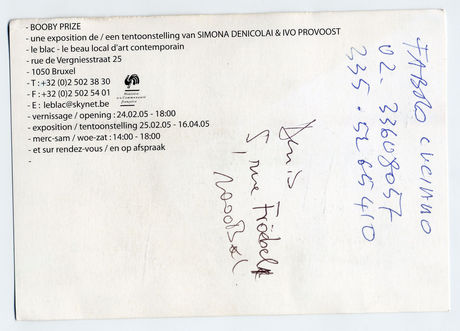 - BOOBY PRIZE
- une exposition de / een tentoonstelling van SIMONA DENICOLAI & IVO PROVOOST
- le blac - le beau local d'art contemporain
- rue de Vergniesstraat 25
- 1050 Bruxel
- T : +32 (0)2 502 38 30
- F : +32 (0)2 502 54 01
- E : leblac@skynet.be
- vernissage / opening : 24.02.05 - 18:00
- exposition / tentoonstelling 25.02.05 - 16.04.05
- merc-sam / woe-zat : 14:00 - 18:00
- et sur rendez-vous / en op afspraak
-
Denis
5, rue Fröbel
1000 Bxl.
FABRO LUCIANO
02. 33608057
335. 5265410